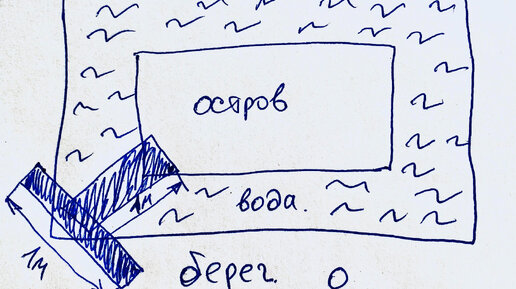 остров
1м
вода.
1м
берег.